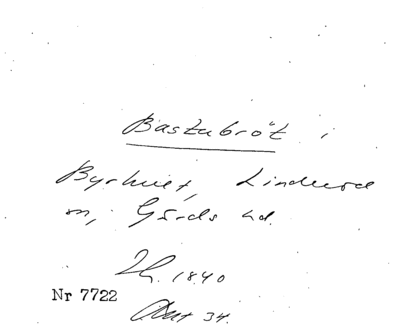 Bastubröt i
Byrhult, Linderöd
sn, Gärds hd.
1840
Nr 7722
34.